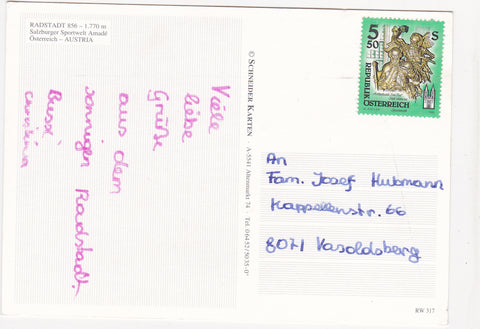 RADSTADT 856 – 1.770 m
Salzburger Sportwelt Amadé
Österreich – AUSTRIA
Viele
liebe
Grüße
aus dem
sonnigen Radstadt.
Bussi
© SCHNEIDER KARTEN A-5541 Altenmarkt 74 Tel. 0 64 52 / 50 35-0*
5 50 S
REPUBLIK
ÖSTERREICH
An
Fam. Josef Hubmann
Kappellenstr. 66
8071 Vasoldsberg
RW 317